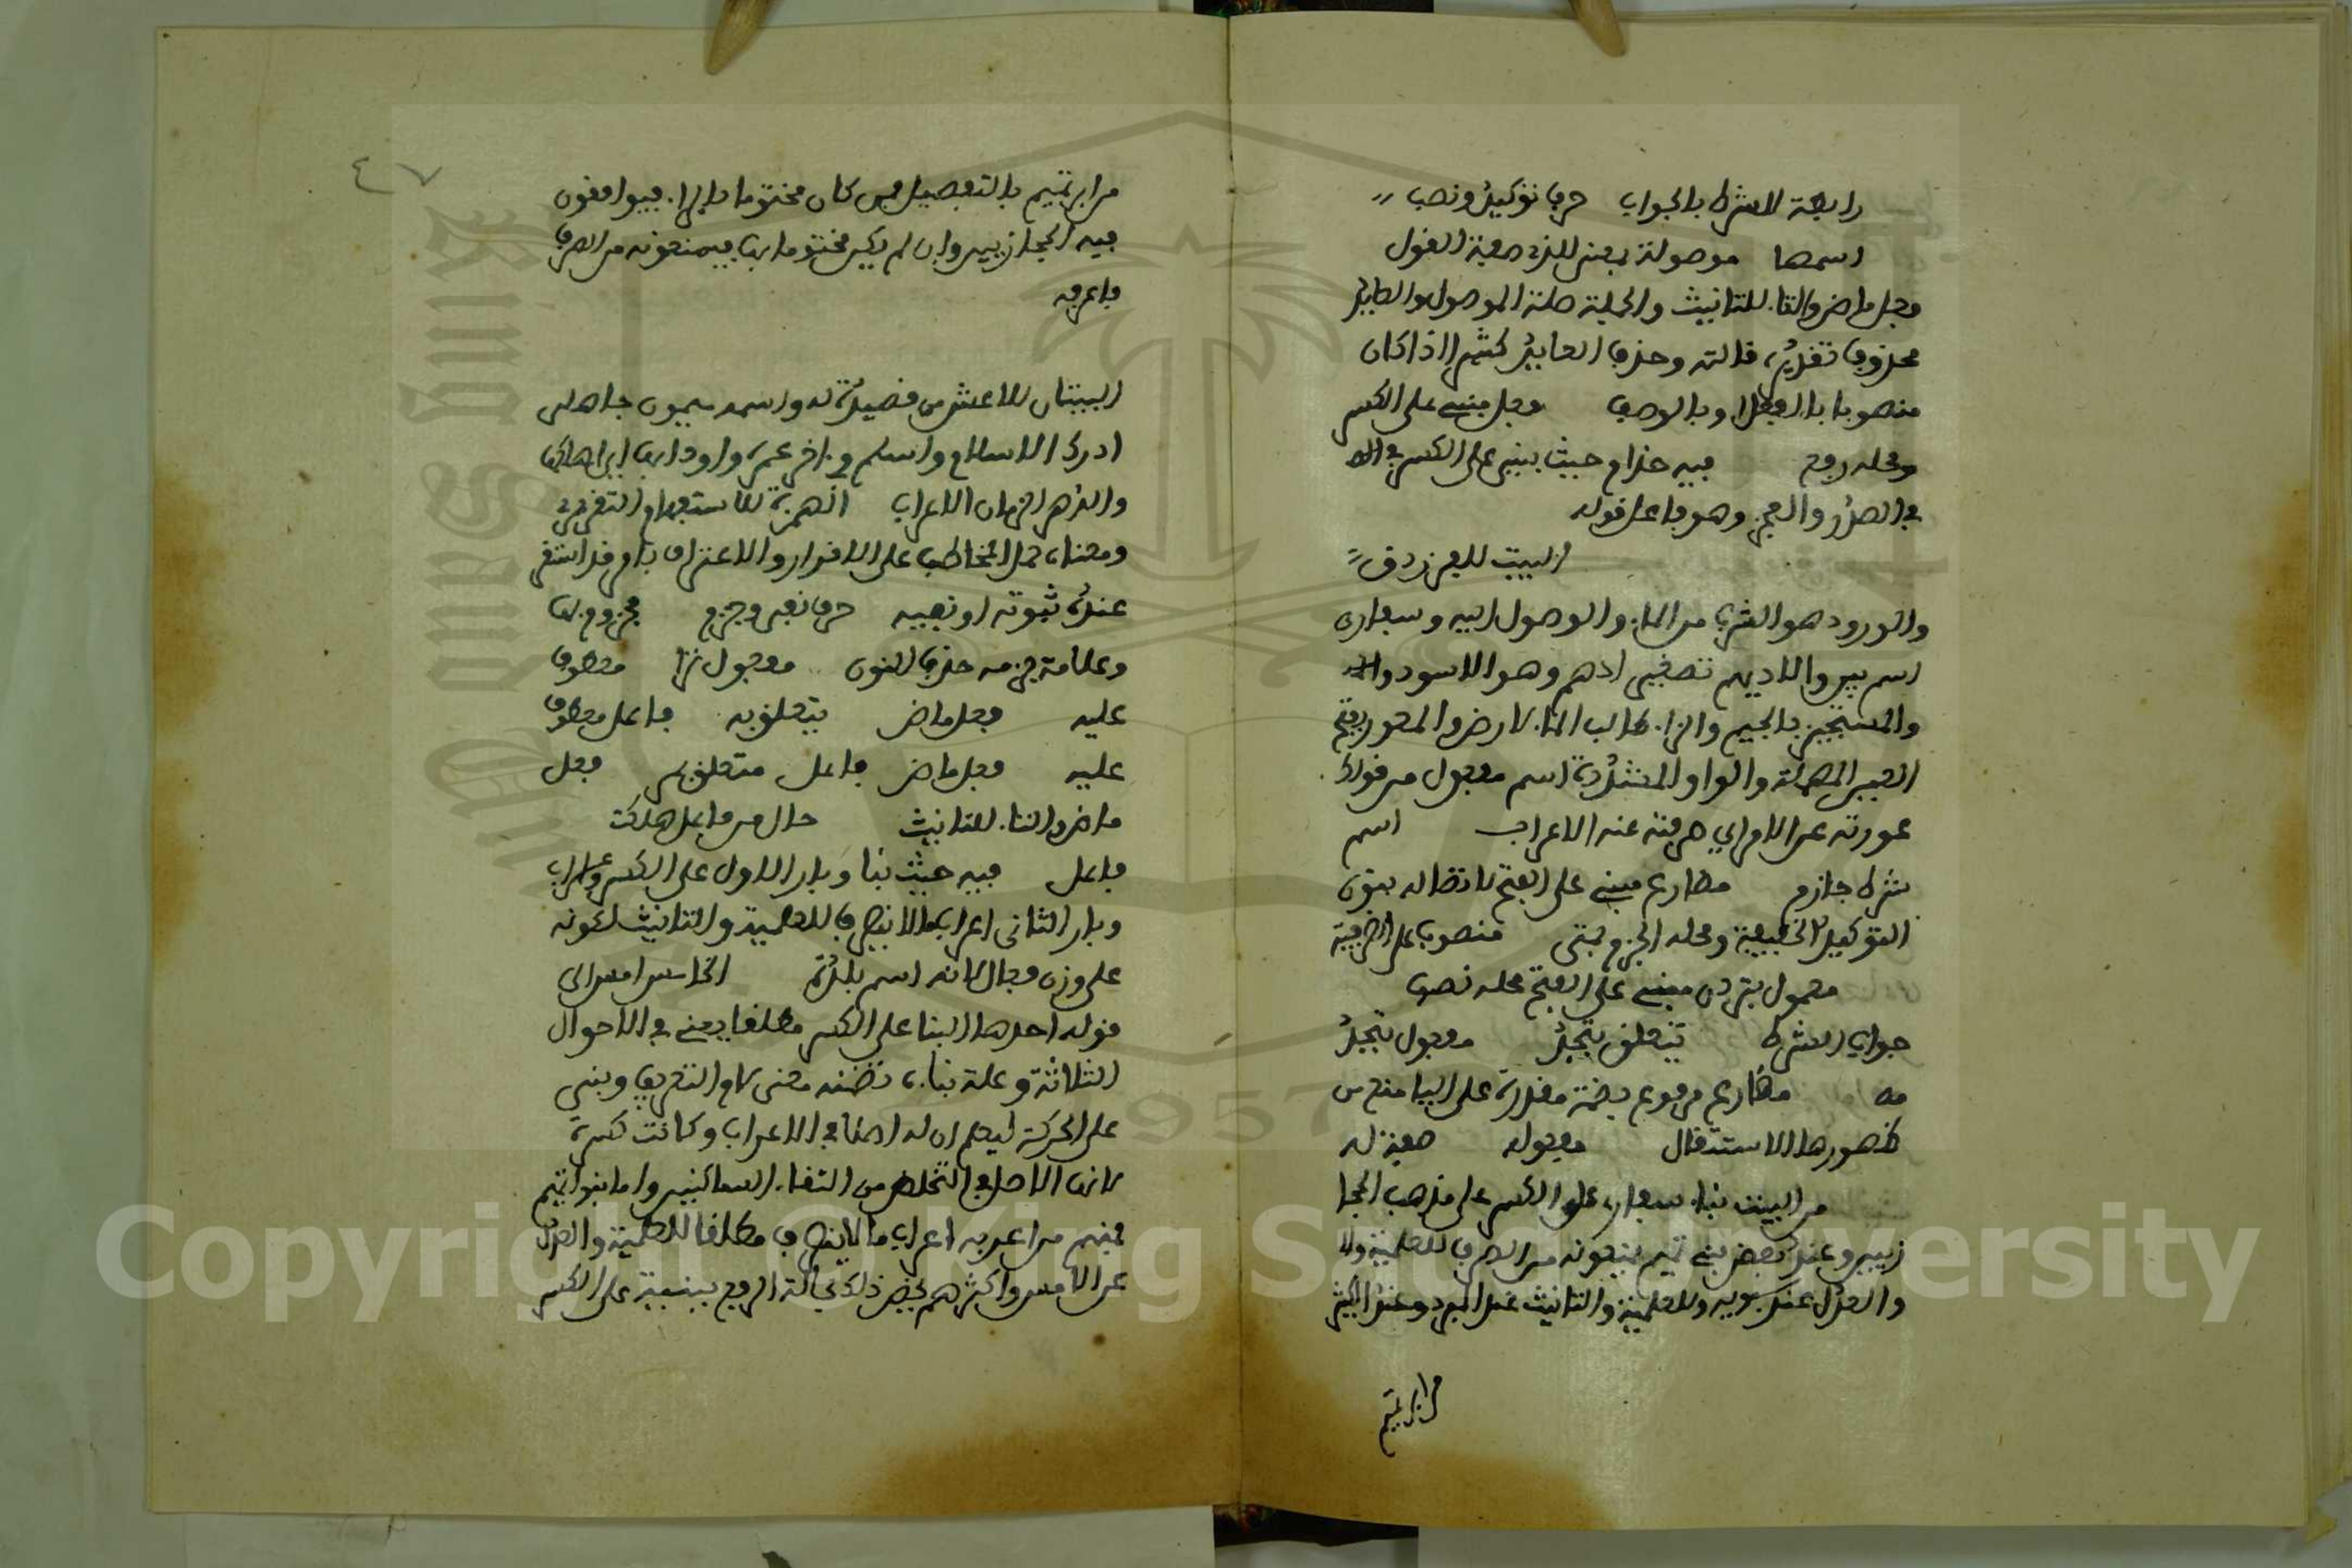 رابطة للشرط بالجواب حرف توكيد ونصب
اسمها موصولة بمعنى الذي صفة القول
فعل ماض والتاء للتانيث والجملة صلة الموصول والعايد
محذوف تقديره قالته وحذف العايد كثير اذا كان
منصوبا بالفعل او بالوصف فعل مبني على الكسر
ومحله رفع فيه حذام حيث بني على الكسر في
في الصدر والعجز وهو فاعل قوله
البيت للفرزدق
والورود هو القرب من الماء والوصول اليه وسفار
اسم بير والاديهم تصغير ادهم وهو الاسود
والمستجيز بالجيم والزاء طالب الماء لارض والمعور بفتح
العين المهملة والواو المشددة اسم مفعول من قولك
عورته عن الامر اي صرفته عنه الاعراب اسم
شرط جازم مضارع مبني على الفتح لاتصاله بنون
التوكيد الخفيفة ومحله الجزم بمتى منصوب على الظرفية
معمول بتردن مبني على الفتح محله نصب
جواب الشرط يتعلق بتجد مفعول بتجد
مضارع مرفوع بضمة مقدرة على اليا منع من
ظهورها الاستثقال مفعوله صفة له
من البيت بناء سفار على الكسر على مذهب الحجا
زيين وعند بعض بني تميم يمنعونه من الصرف للعلمية
والعدل عند سيبويه وللعلمية والتانيث عند المبرد وعند اكثر
من ابن تميم
٤٧
من ابن تميم بالتفصيل فمن كان مختوما بالراء فيوافقون
فيه الحجازيين وان لم يكن مختوما بها فيمنعونه من الصرف
فاعرفه
البيتان للاعشى من قصيدة له واسمه ميمون جاهلي
ادرك الاسلام واسلم في اخر عمره واودى بها اي اهلكها
والدهر الزمان الاعراب الهمزة للاستفهام التقريري
ومعناه حمل المخاطب على الاقرار والاعتراف بامر قد استقر
عنده ثبوته او نفيه حرف نفي وجزم مجزوم بها
وعلامة جزمه حذف النون مفعول ترا معطوف
عليه فعل ماض يتعلق به فاعل معطوف
عليه فعل ماض فاعل متعلق بمر فعل
ماض والتاء للتانيث حال من فاعل هلكت
فاعل فيه حيث بنا وبار الاول على الكسر واعراب
وبار الثاني اعراب ما لا ينصرف للعلمية والتانيث لكونه
على وزن فعال لانه اسم بلدة الخامس امس الى
قوله احدها البنا على الكسر مطلقا يعني في الاحوال
الثلاثة وعلة بنايه تضمنه معنى لام التعريف وبني
على الحركة ليعلم ان له اصلا في الاعراب وكانت كسرة
لانها الاصل في التخلص من التقاء الساكنين واما بنوا تميم
فمنهم من اعربه اعراب ما لا ينصرف مطلقا للعلمية والعدل
عن الامس واكثرهم يخص ذلك بحالة الرفع يبنيه على الكسر